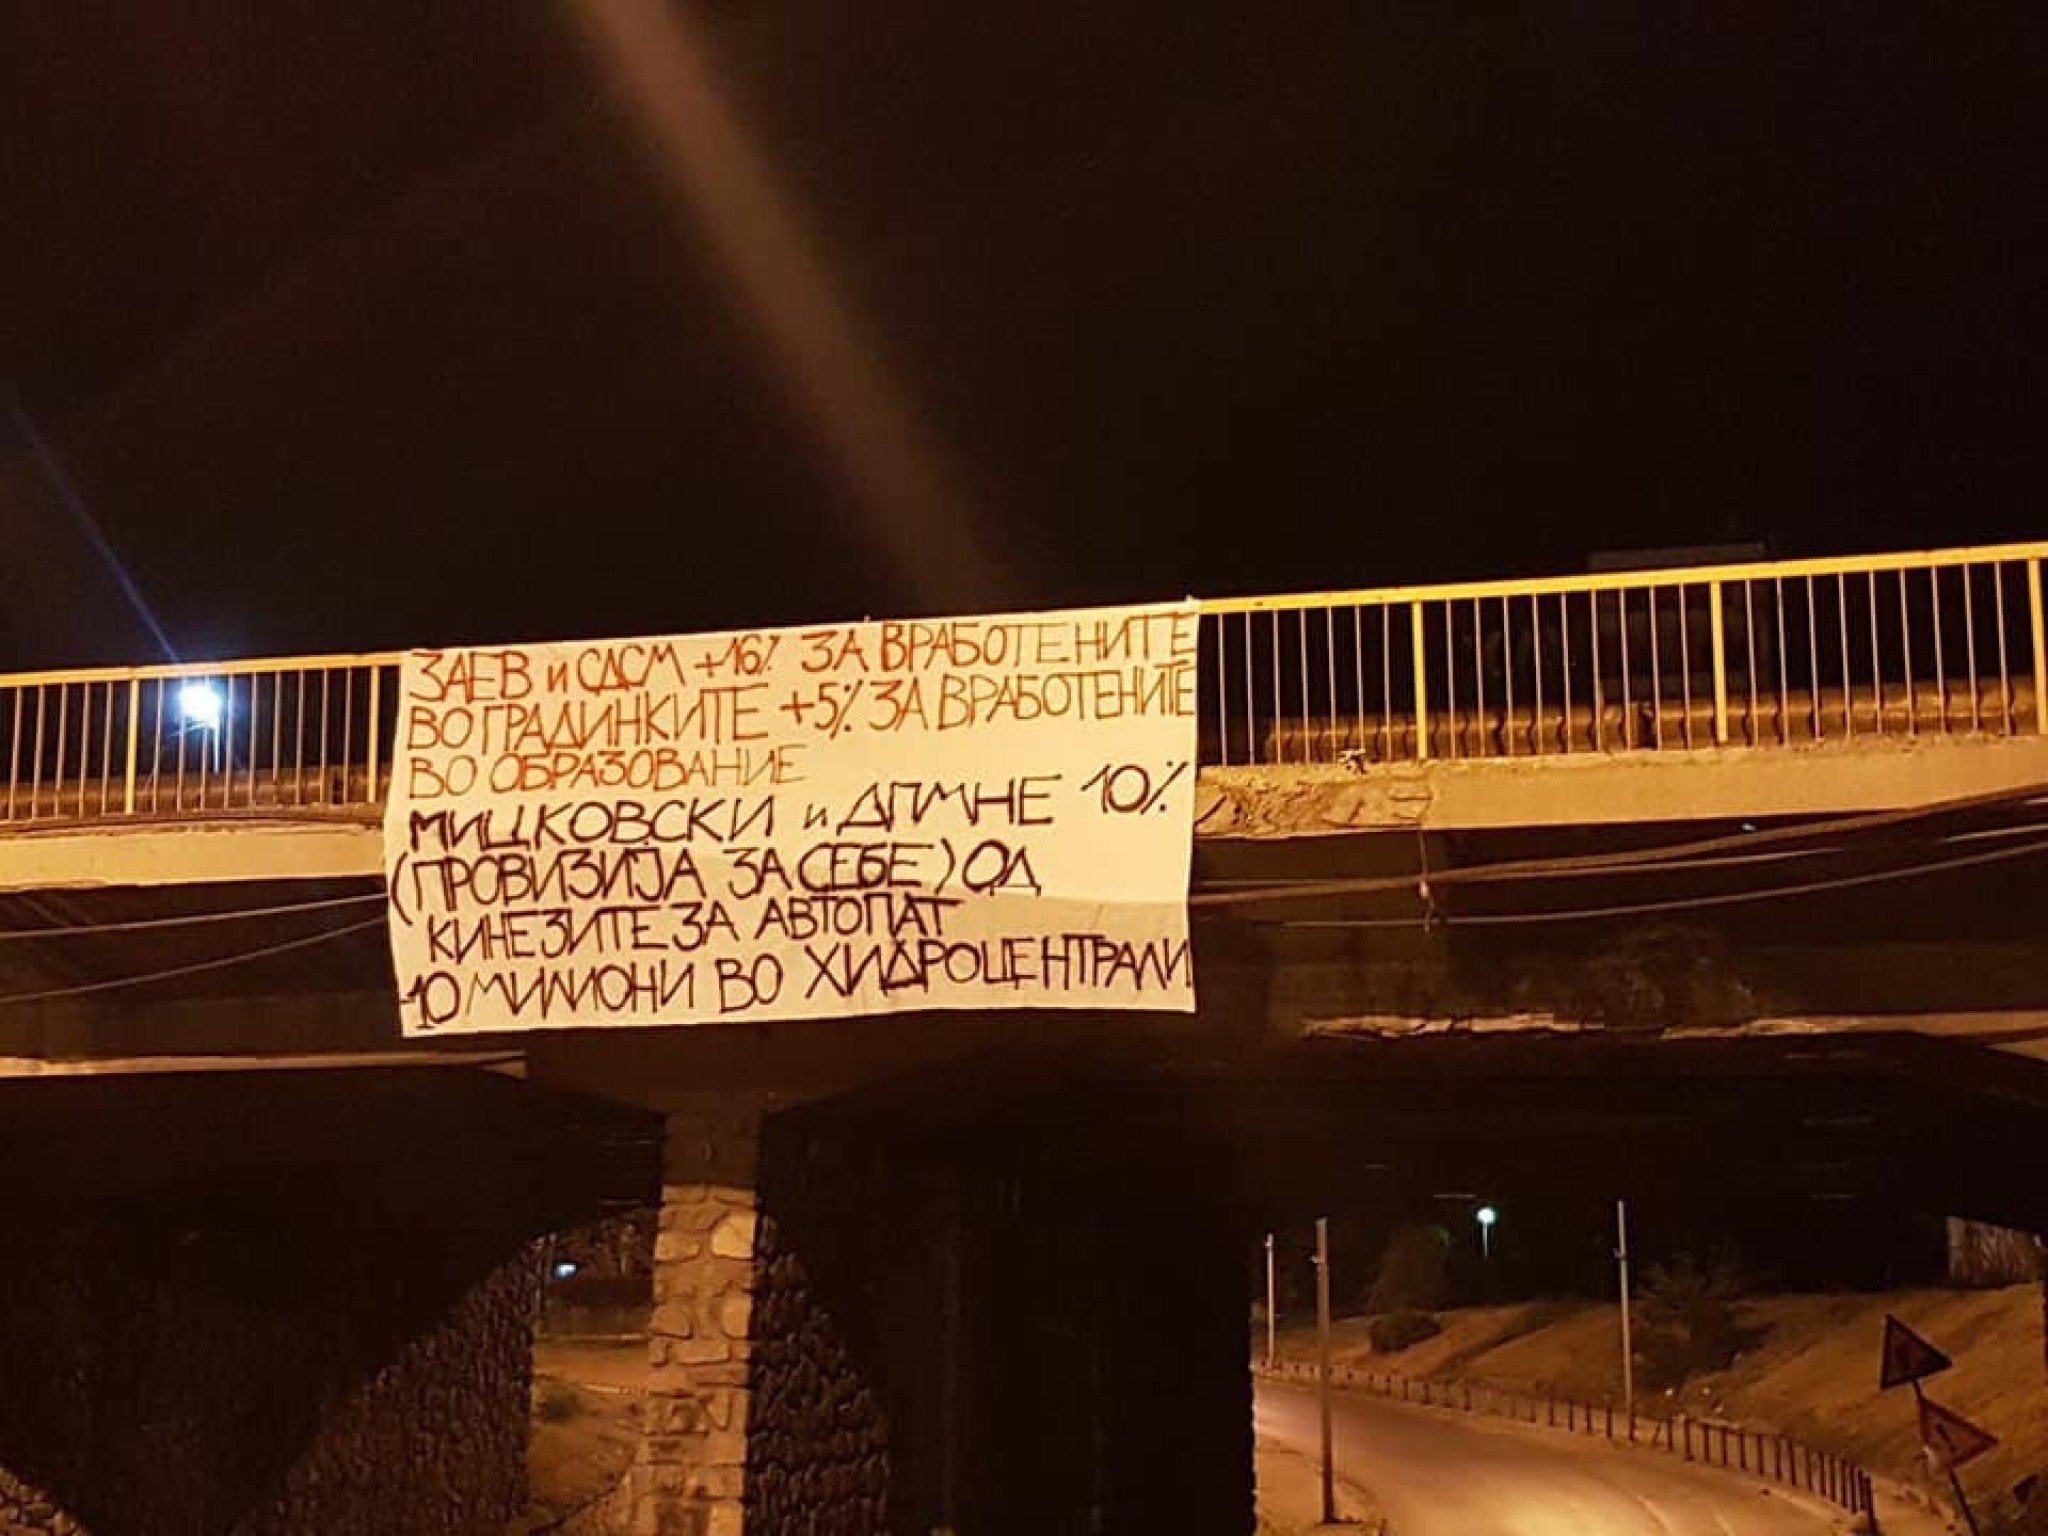 ЗАЕВ и СДСМ +16% ЗА ВРАБОТЕНИТЕ
ВО ГРАДИНКИТЕ +5% ЗА ВРАБОТЕНИТЕ
ВО ОБРАЗОВАНИЕ
МИЦКОВСКИ и ДПМНЕ 10%
(ПРОВИЗИЈА ЗА СЕБЕ) ОД
КИНЕЗИТЕ ЗА АВТОПАТ
10 МИЛИОНИ ВО ХИДРОЦЕНТРАЛИ